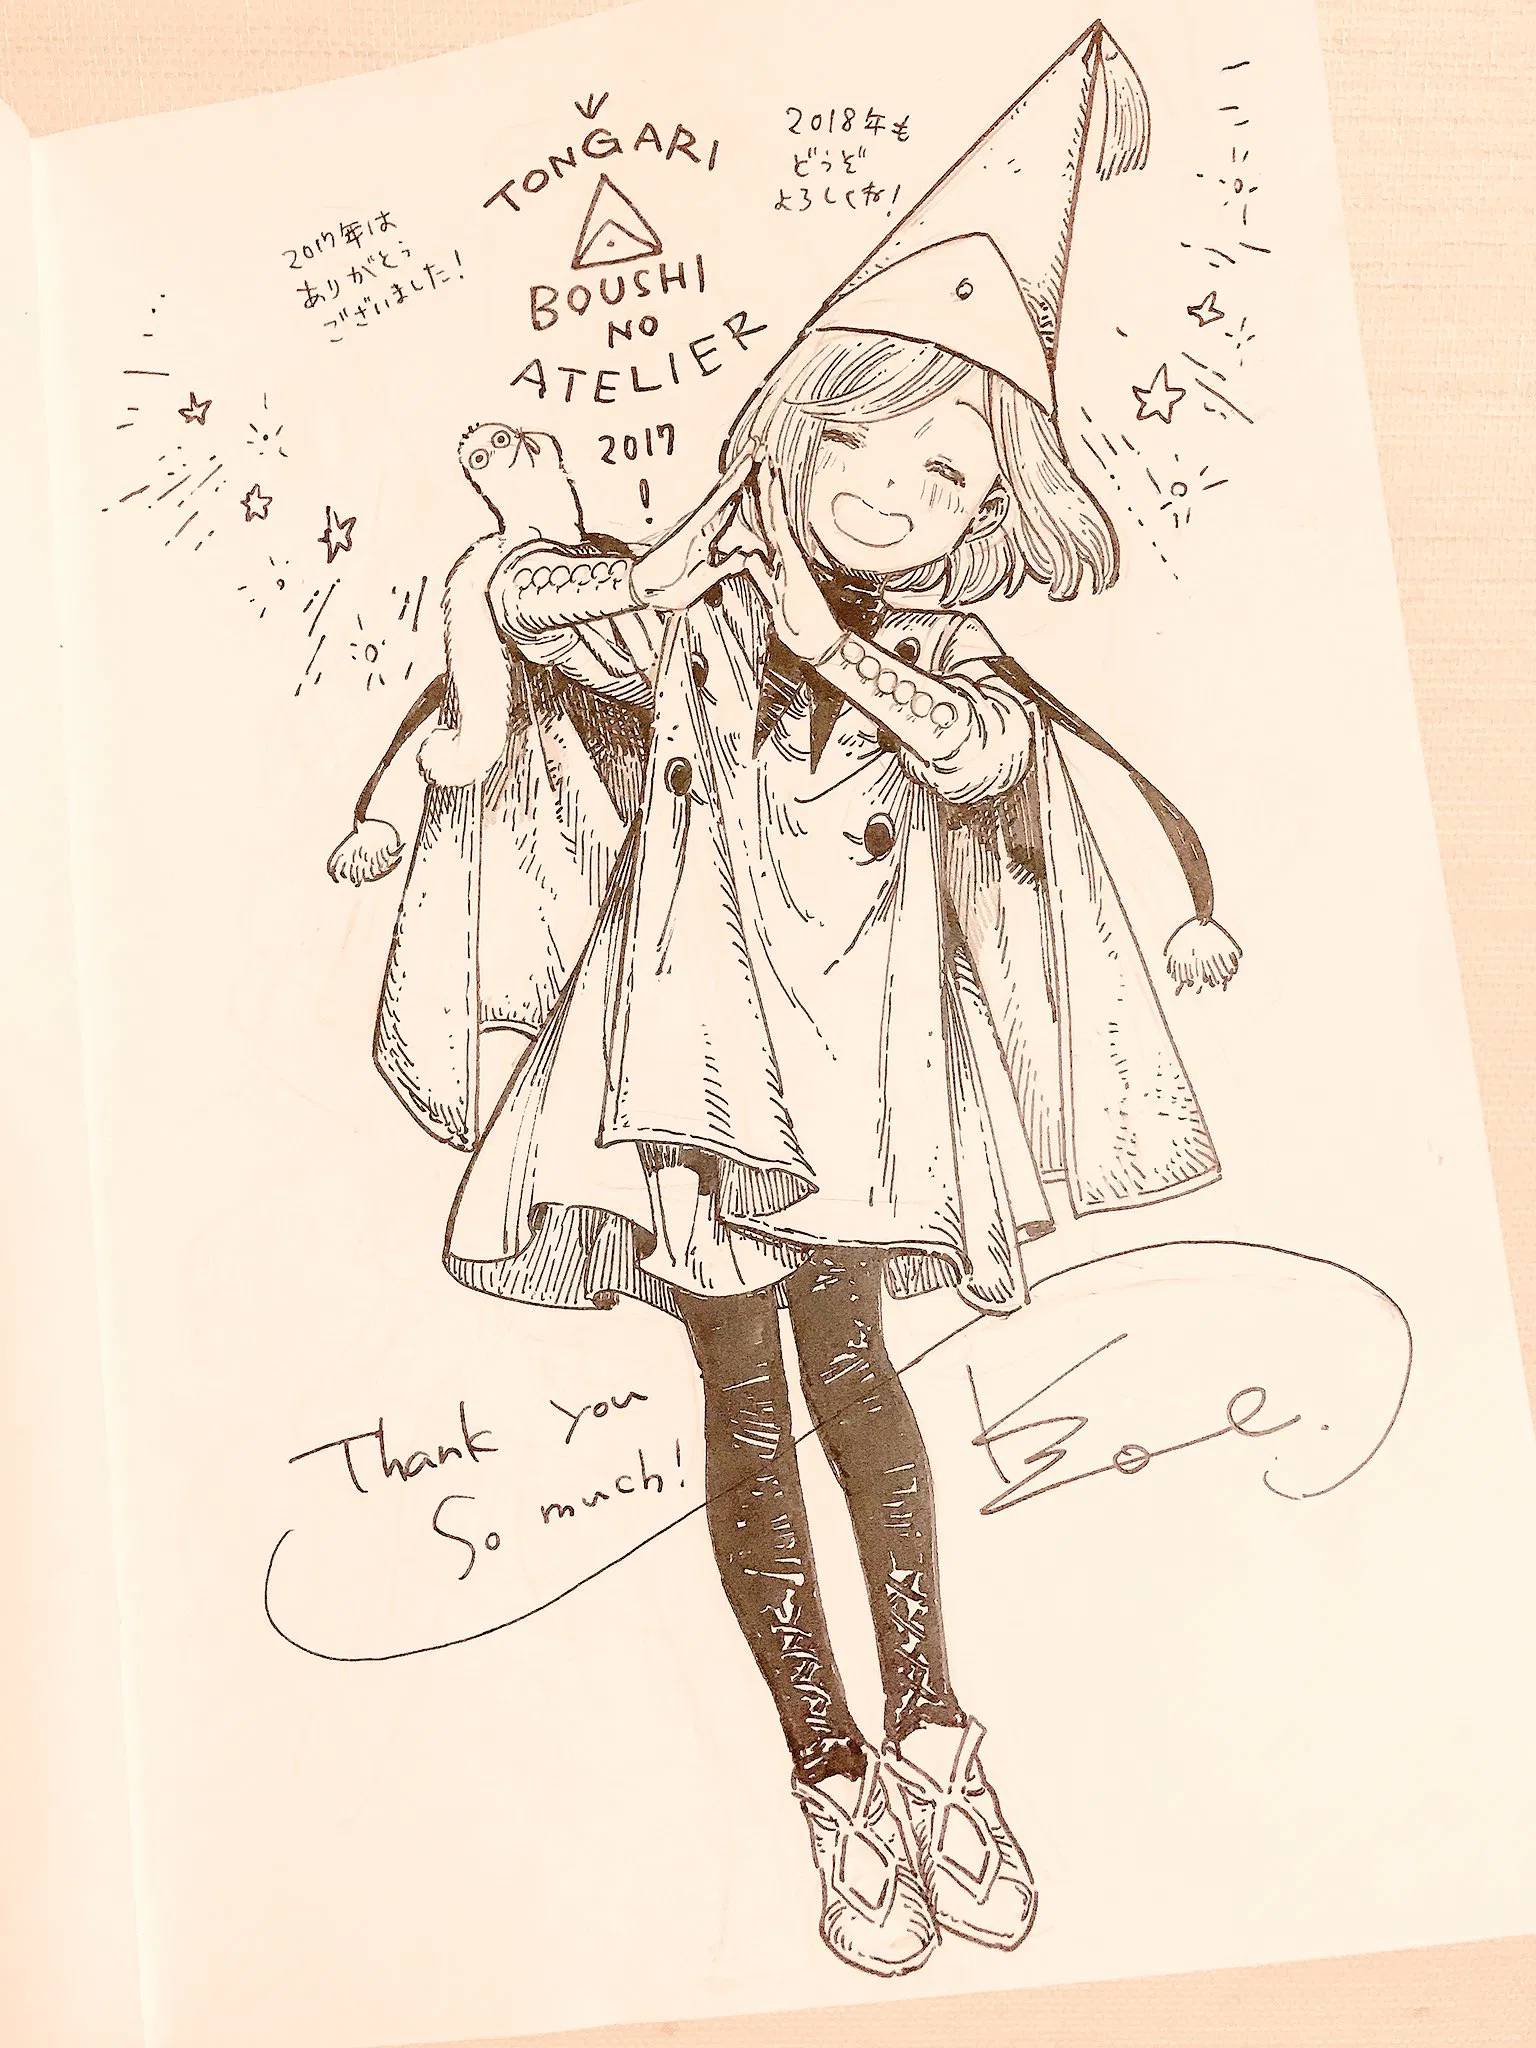 2017年は
ありがとう
ございました!
TONGARI
BOUSHI
NO
ATELIER
2017
!
2018年も
どうぞ
よろしくね!
Thank you
So much!